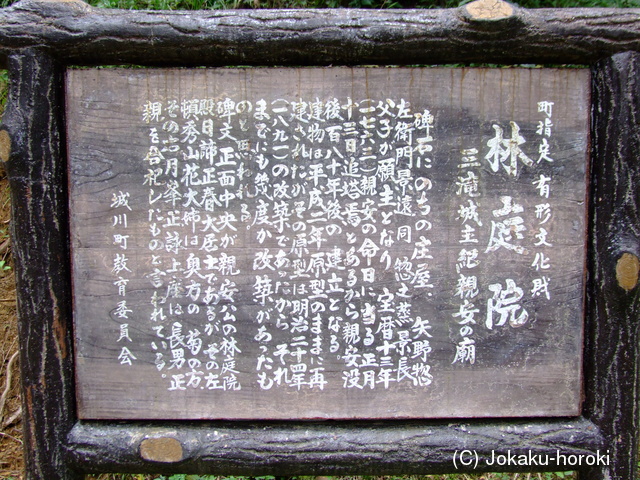 町指定 有形文化財
林庭院
三滝城主紀親安の廟
碑石にのちの庄屋、矢野惣
左衛門景遠 同 惣之丞景長
父子が願主となり 宝暦十三年
(一七六三)親安の命日に当る正月
十三日追塔焉とあるから親安没
後百八十年後の建立となる。
建物は平成二年原型のままに再
建されたがその原型は明治二十四年
(一八九一)の改築であったから それ
までにも幾度か改築があったも
のと思われる。
碑文正面中央が親安公の林庭院
殿日諦正春大居士であるが その左
傾秀山花大姉は奥方の 菊の方
その右月峯正詳上座は 長男正
親を合祀したものと言われている。
城川町教育委員会
(C) Jokaku-horoki